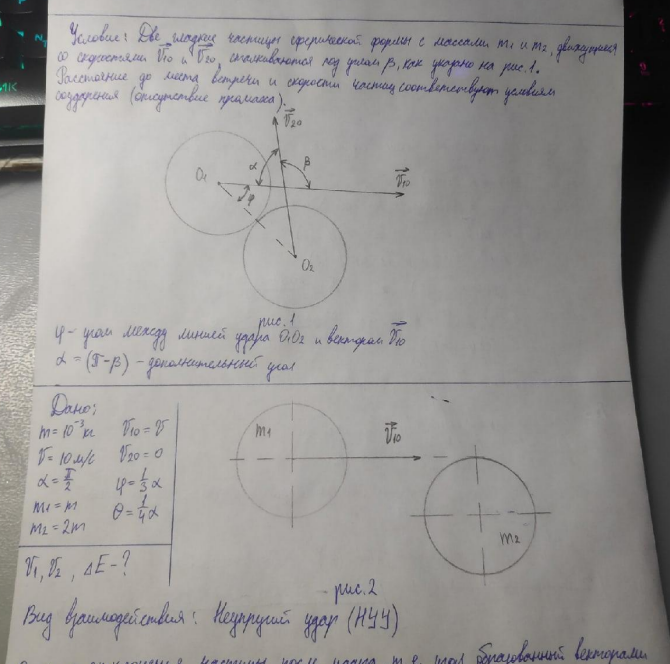 Условие: Две гладкие частицы сферической формы с массами m1 и m2, движущиеся
со скоростями V10 и V20, сталкиваются под углом β, как указано на рис.1.
Расстояние до места встречи и скорости частиц соответствуют условиям
соударения (отсутствие промаха).
V20
α
β
O1
V10
φ
O2
рис.1
φ - угол между линией удара O1O2 и вектором V10
α = (π-β) - дополнительный угол
Дано:
m = 10⁻³ кг V10 = V
V = 10 м/с V20 = 0
α = π/2 φ = 1/3 α
m1 = m θ = 1/4 α
m2 = 2m
V1, V2, ΔE - ?
m1
V10
m2
рис.2
Вид взаимодействия: Неупругий удар (НУУ)
частицы после удара, т.е. угол образованный векторами